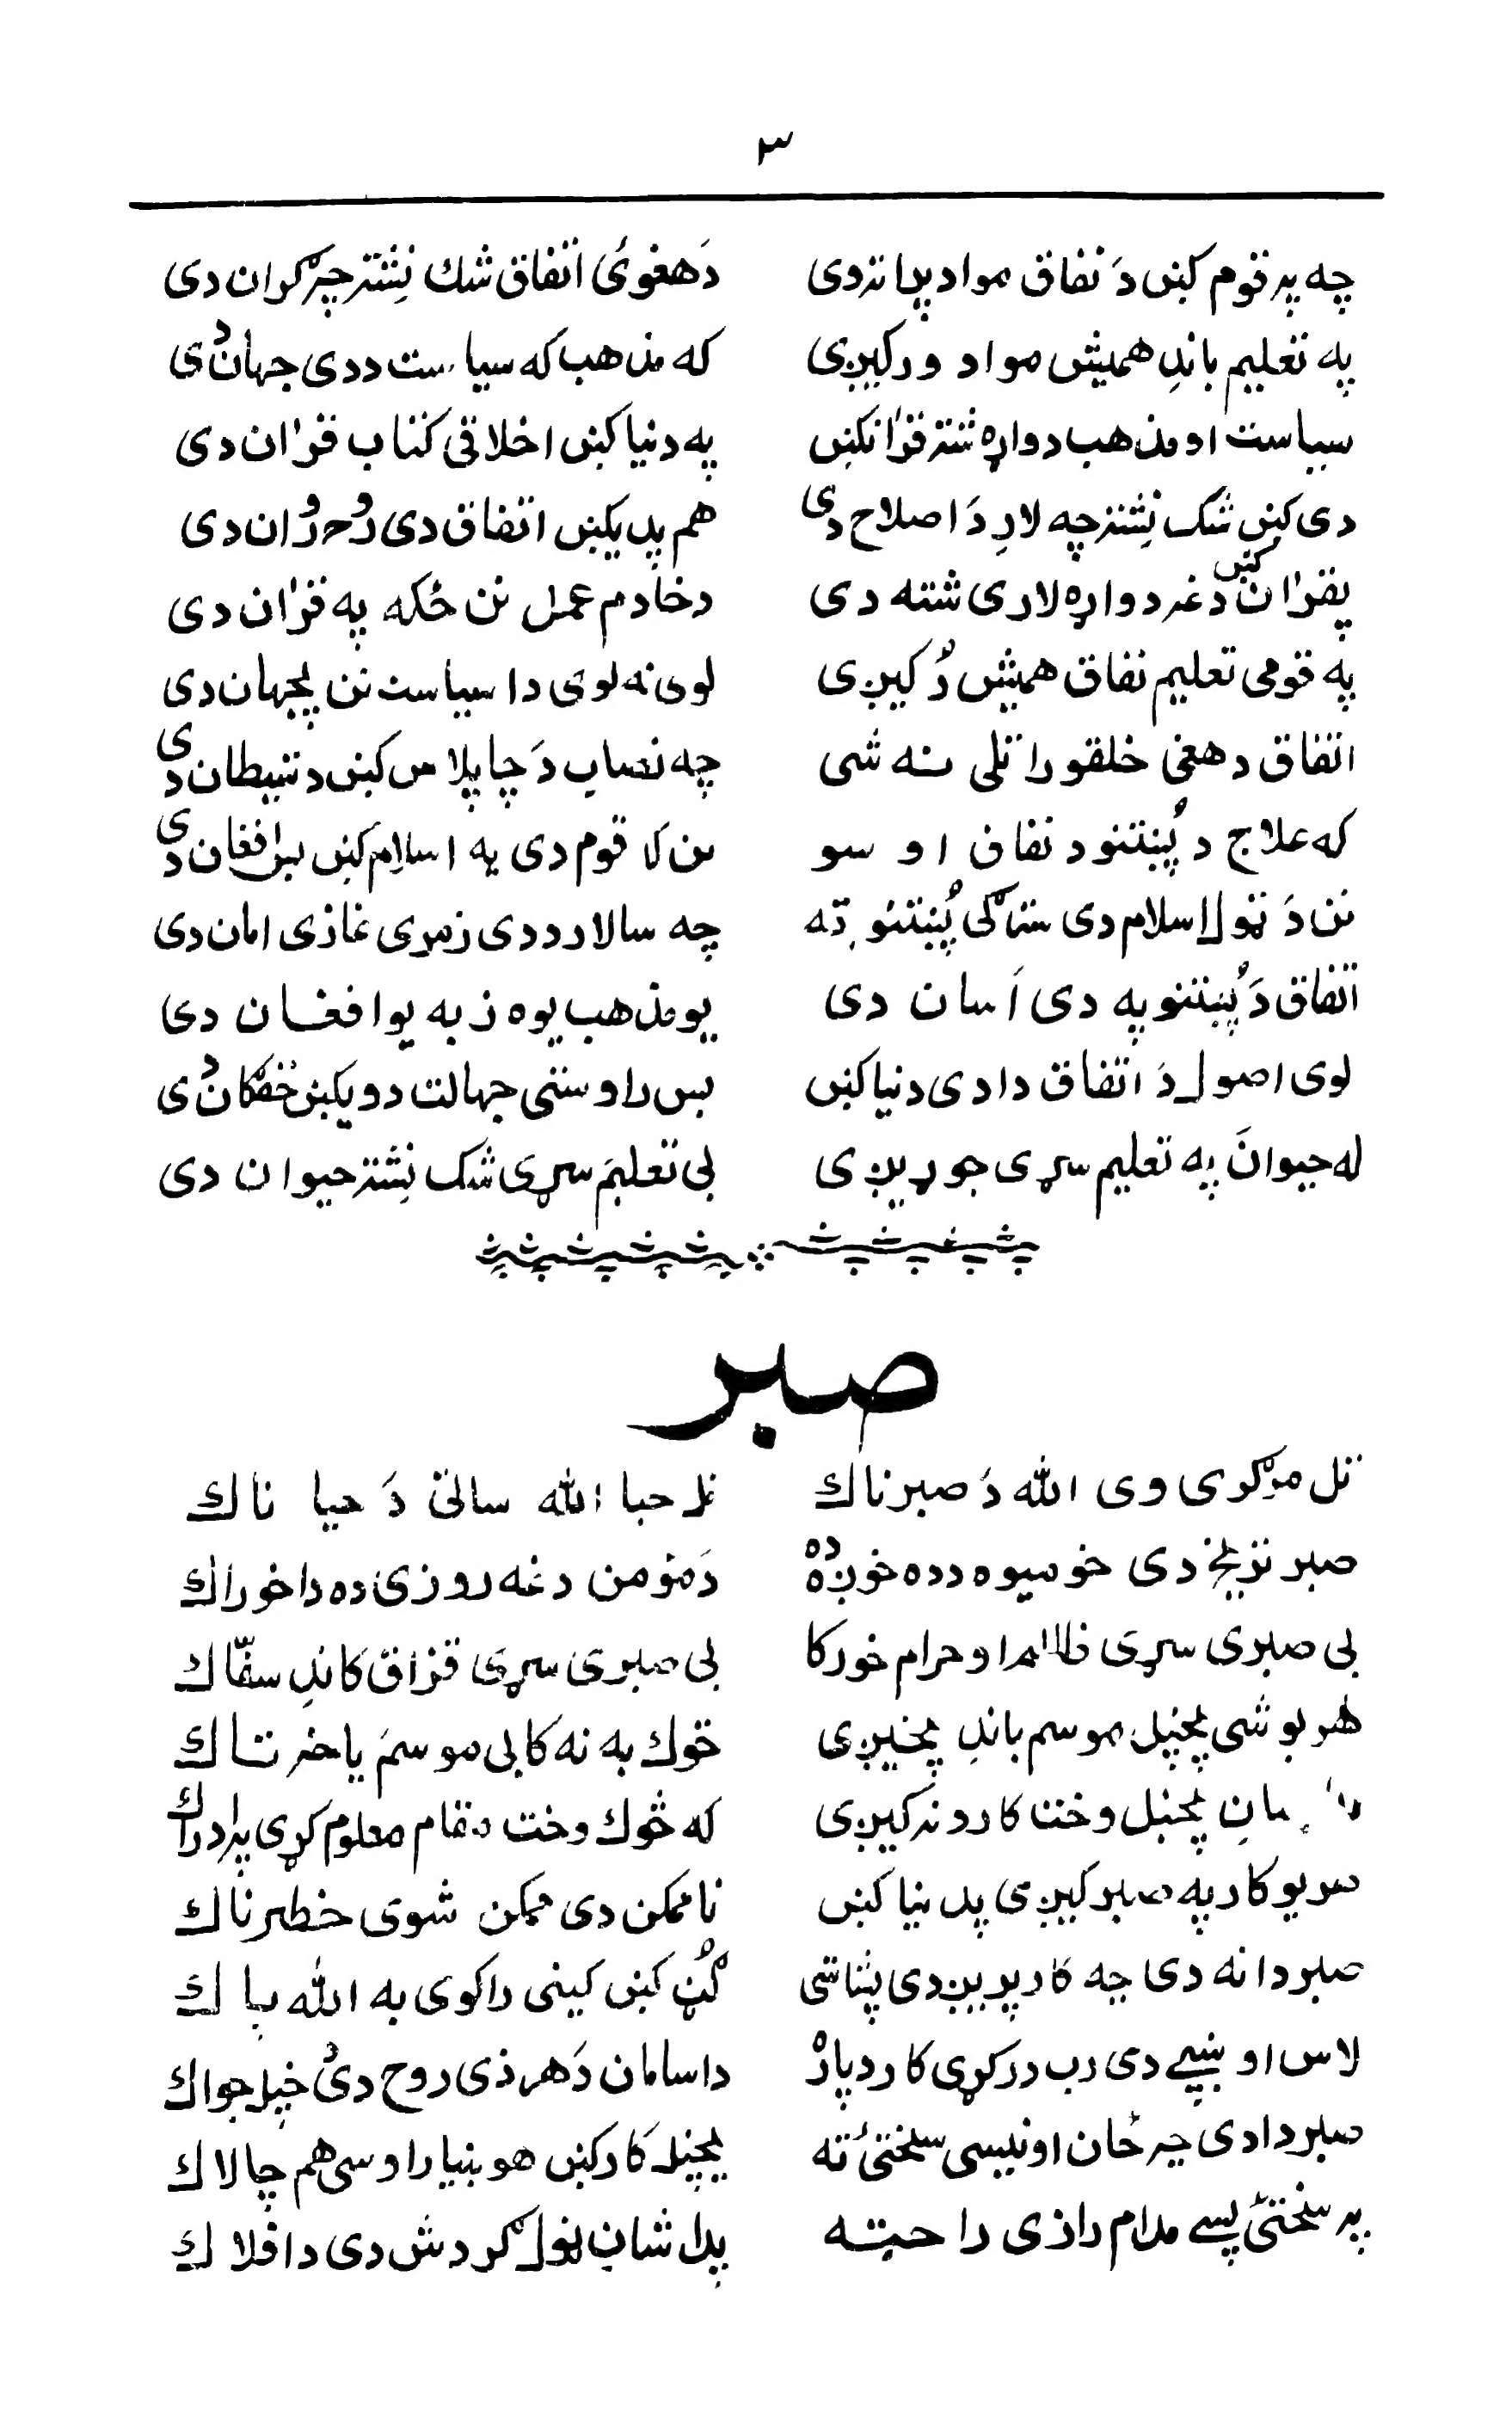 ۳
چه په قوم کښ دَ نفاق مواد پراته وی دَهغویٔ اتفاق شک نِشته چه ګران دی
په تعلیم باندِ همیش مواد ورکیږی که مذهب که سیاست ددی جهان دُی
سیاست او مذهب دواړه شته قراٰنکښ په دنیا کښ اخلاقی کتاب قراٰن دی
دی کښ شک نِشته چه لارِ دَ اصلاح دی هم پدیکښ اتفاق دی رُوح رُوان دی
پقراٰن کښ دغه دواړه لاری شته دی دخادم عمل نن ځکه په قراٰن دی
په قومی تعلیم نفاق همیش وُرکیږی لوی نه لوی دا سیاست نن پجهان دی
اتفاق دهغی خلقو راتلی نه شی چه نصاب دَ چا پلاس کښ دشیطان دی
که علاج د پُښتنو د نفاق اوسو نن لا قوم دی په اسلام کښ بل افغان دی
نن دَ ټول اسلام دی سترګی پُښتنو ته چه سالار ددی زمری غازی امان دی
اتفاق دَ پُښتنو په دی اَسان دی یو مذهب یوه ژبه یو افغان دی
لوی اصول دَ اتفاق دا دی دنیا کښ بس راوستی جهالت دویکښ خفګان دُی
له حیوانَ په تعلیم سړی جوړیږی بی تعلیمَ سړی شک نِشته حیوان دی
صبر
تل مِلګری وی الله دَ صبرناک تل حیا الله ساتی دَ حیا ناک
صبر تریخ دی خو میوه دده خوږه ده دَمؤمن دغه روزی ده دا خوراک
بی صبری سړی ظالم او حرام خور کا بی صبری سړی قزاق کاندِ سفّاک
هر یو شی پخپل موسم باندِ پخیږی څوک به نه کا بی موسمَ یاخر تاک
پخپل وخت کار ونه کیږی که څوک وخت مقام معلوم کړی په ادراک
هر یو کار په صبر کیږی پدنیا کښ ناممکن دی ممکن شوی خطرناک
صبر دا نه دی چه کار پریږدی پشاشی ګُټ کښ کینی راکوی به الله پاک
لاس او ښپے دی رب درکړی کار دپارهٔ دا سامان دَهر ذی روح دیٔ خپل جواک
صبر دا دی چه ځان اونیسی سختیٔ ته پخپل کار کښ هوښیار اوسی هم چالاک
په سختیٔ پسے مدام راځی راحیته پدا شان ټول ګردش دی دافلاک